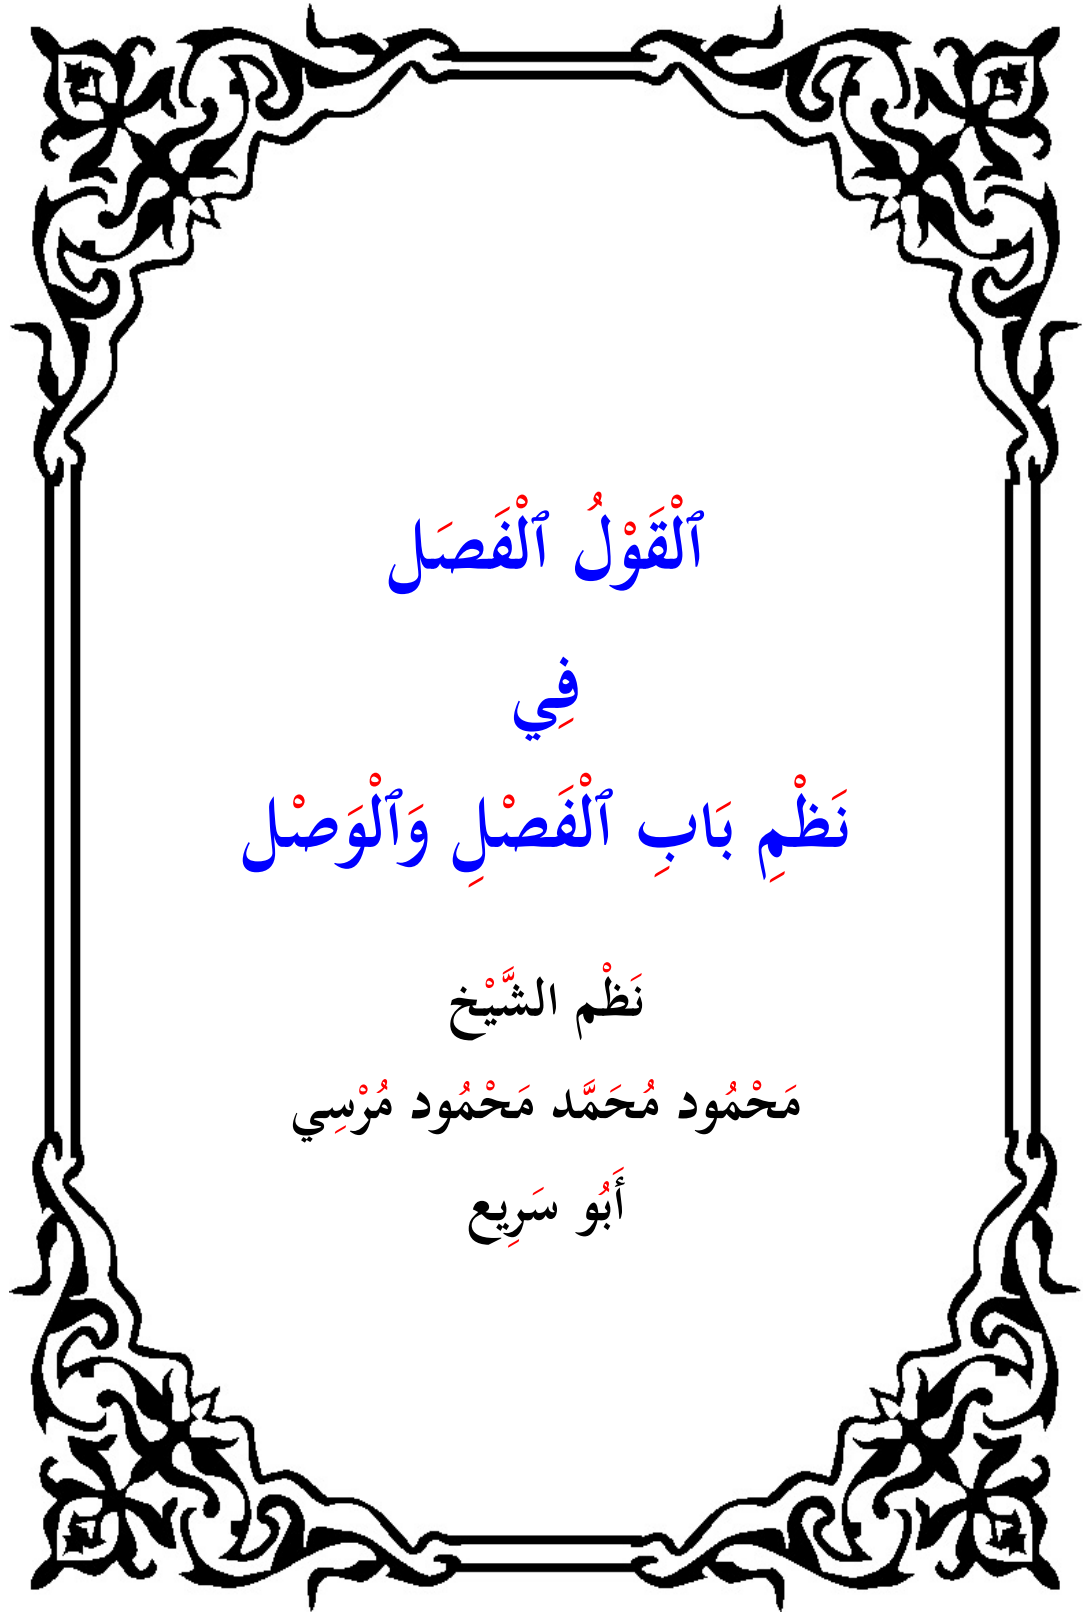 ٱلْقَوْلُ ٱلْفَصَل
فِي
نَظْمِ بَابِ ٱلْفَصْلِ وَٱلْوَصْل
نَظْم الشَّيْخ
مَحْمُود مُحَمَّد مَحْمُود مُرْسِي
أَبُو سَرِيع